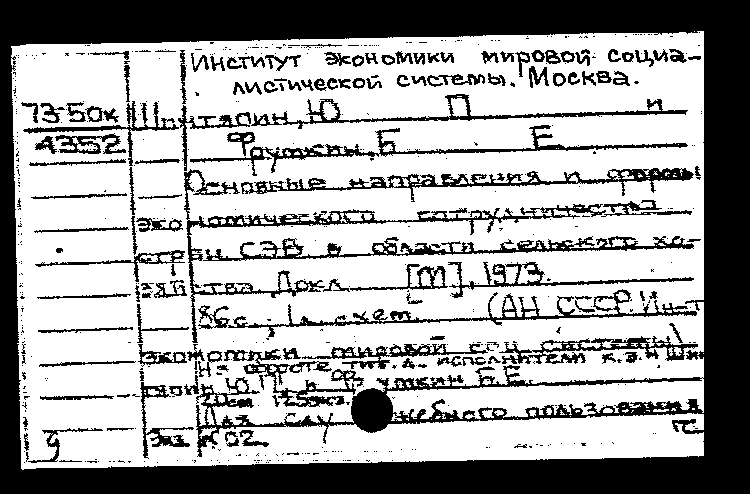 Институт экономики мировой социа-
листической системы. Москва.
73-50к Шпитялин, Ю П и
4352 Фрумкин, Б Е
Основные направления и формы
экономического сотрудничества
стран СЭВ в области сельского хо-
зяйства Докл [М], 1973.
86с., 1л. схем. (АН СССР. Инст
экономики мировой соц системы)
На обороте тит. л. исполнители к.э.н
Ю.П. и Фрумкин Б.Е.
20см 125экз.
Для служебного пользования
Экз. №02.